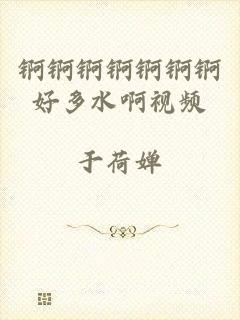 锕锕锕锕锕锕锕
好多水啊视频
于荷婵